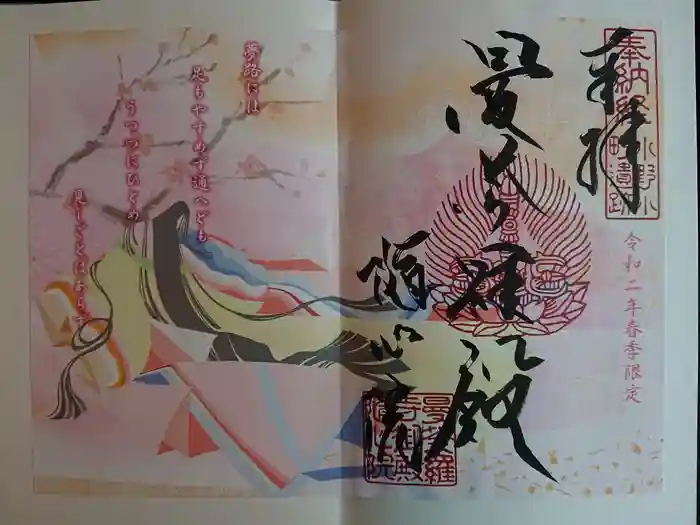 奉拝
曼荼羅殿
随心院
奉納経
小野小町遺跡
令和二年春季限定
曼荼羅
寺御殿
随心院
夢路には
足もやすめず通へども
うつつにひとめ
見しごとはあらず